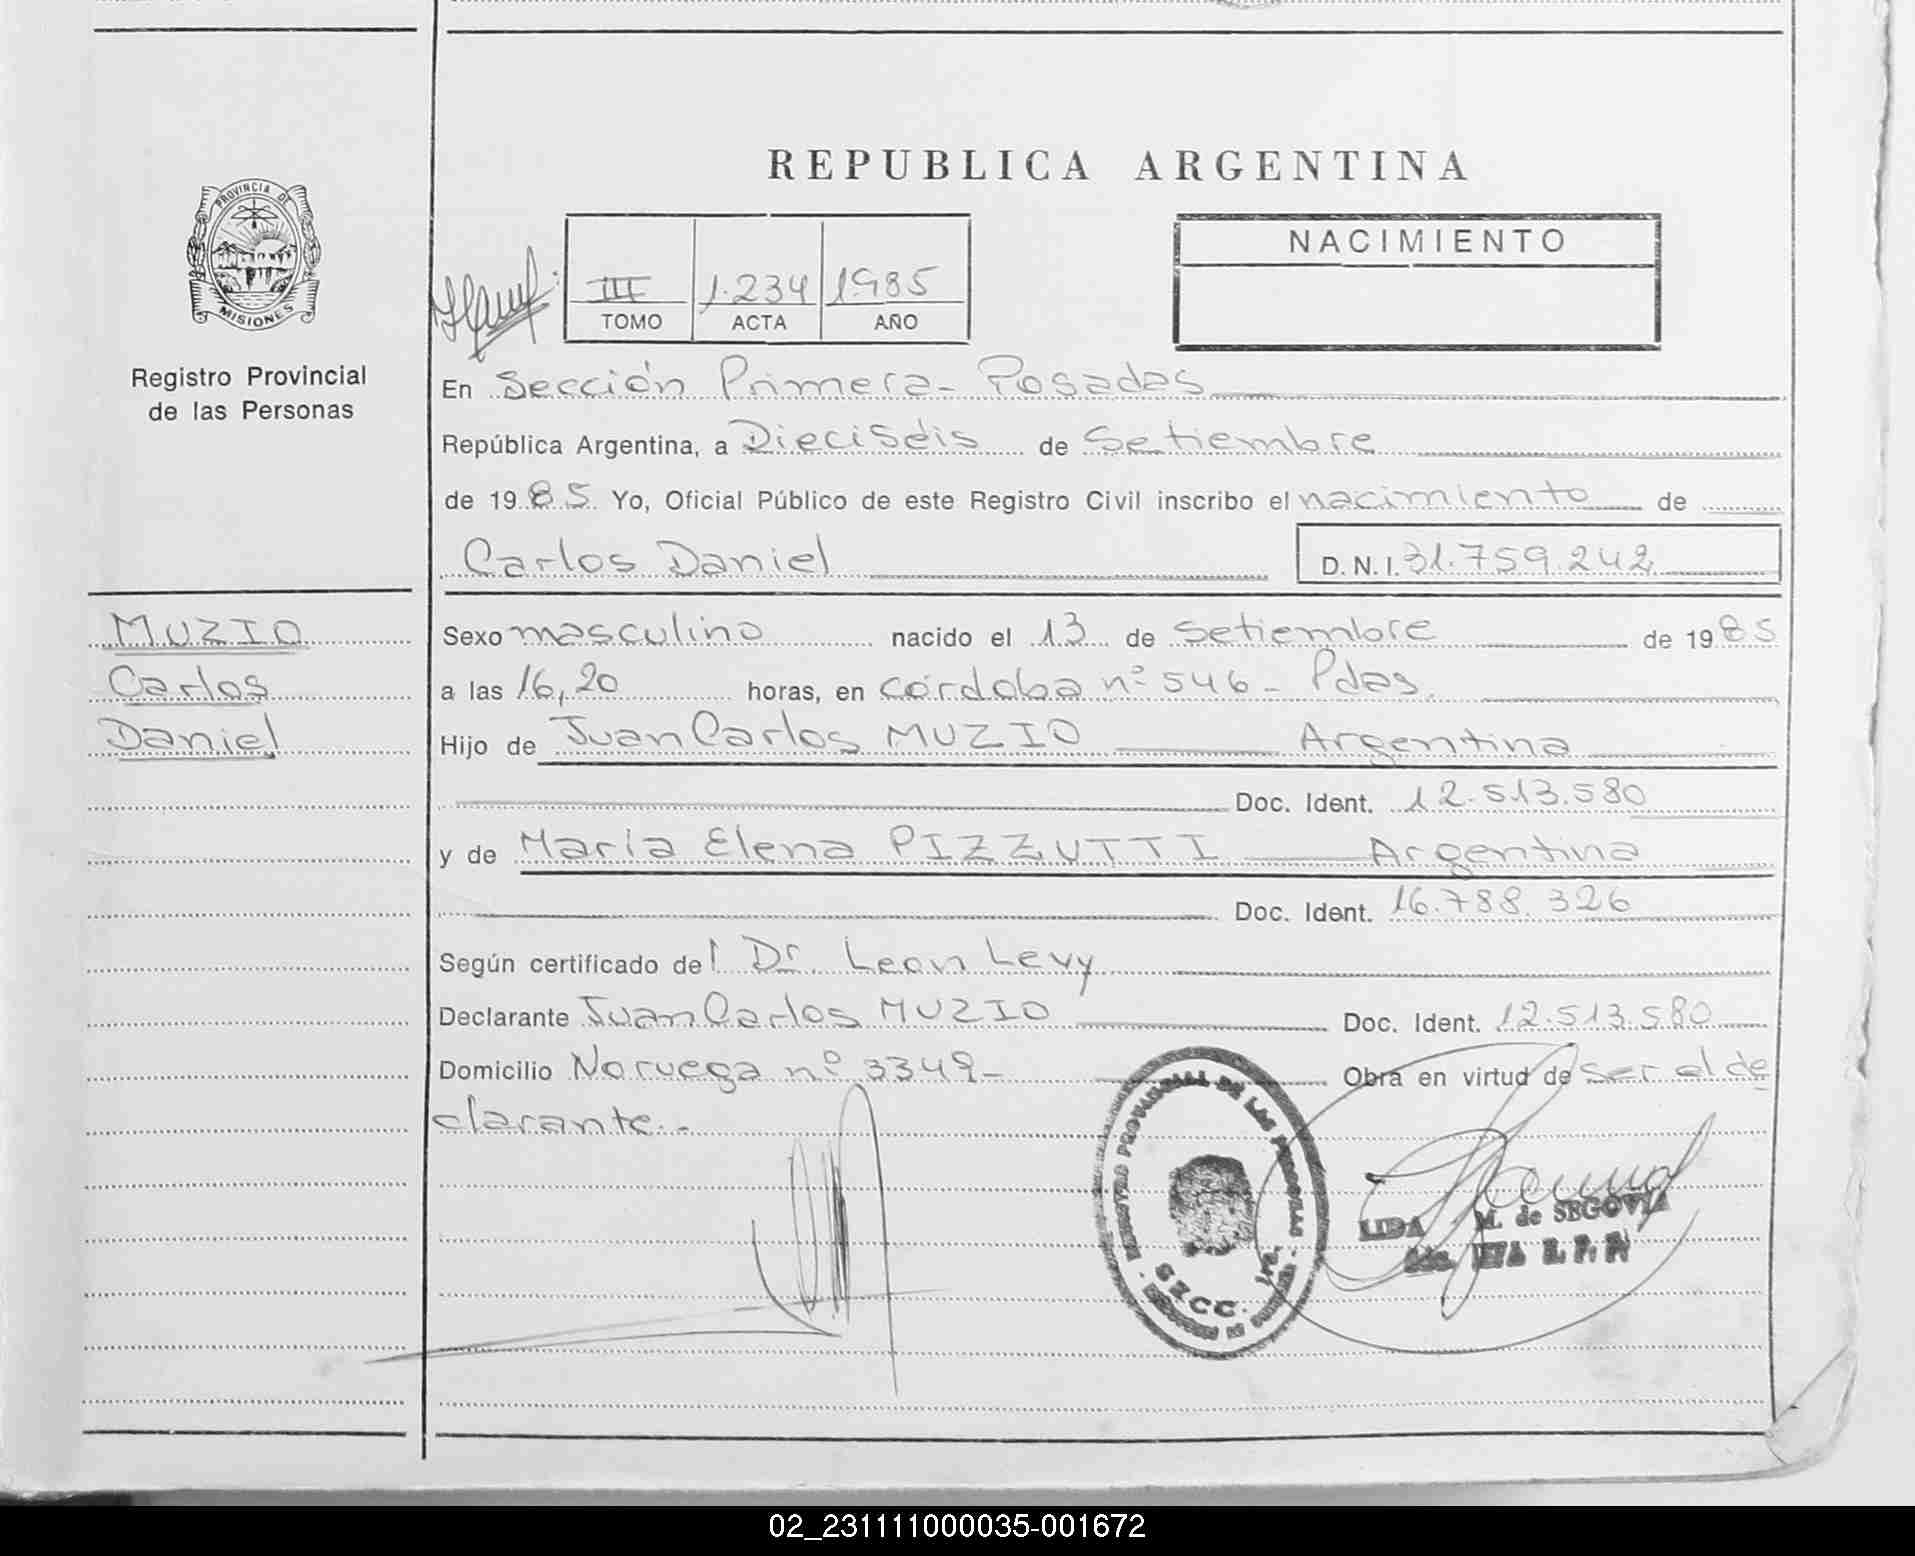 REPUBLICA ARGENTINA
PROVINCIA DE MISIONES
Registro Provincial
de las Personas
III 1.234 1985
TOMO ACTA AÑO
NACIMIENTO
En Sección Primera- Posadas
República Argentina, a Dieciséis de Setiembre
de 1985 Yo, Oficial Público de este Registro Civil inscribo el nacimiento de
Carlos Daniel D.N.I. 31.759.242
MUZIO
Carlos
Daniel
Sexo masculino nacido el 13 de Setiembre de 1985
a las 16,20 horas, en córdoba nº 546- Pdas.
Hijo de Juan Carlos MUZIO Argentina
Doc. Ident. 12.513.580
y de María Elena PIZZUTTI Argentina
Doc. Ident. 16.788.326
Según certificado del Dr. Leon Levy
Declarante Juan Carlos MUZIO Doc. Ident. 12.513.580
Domicilio Noruega nº 3349- Obra en virtud de ser el de
clarante.-
REGISTRO PROVINCIAL DE LAS PERSONAS
SECC. 1ra.
LIDA M. de SEGOVIA
R. P. P.
02_231111000035-001672